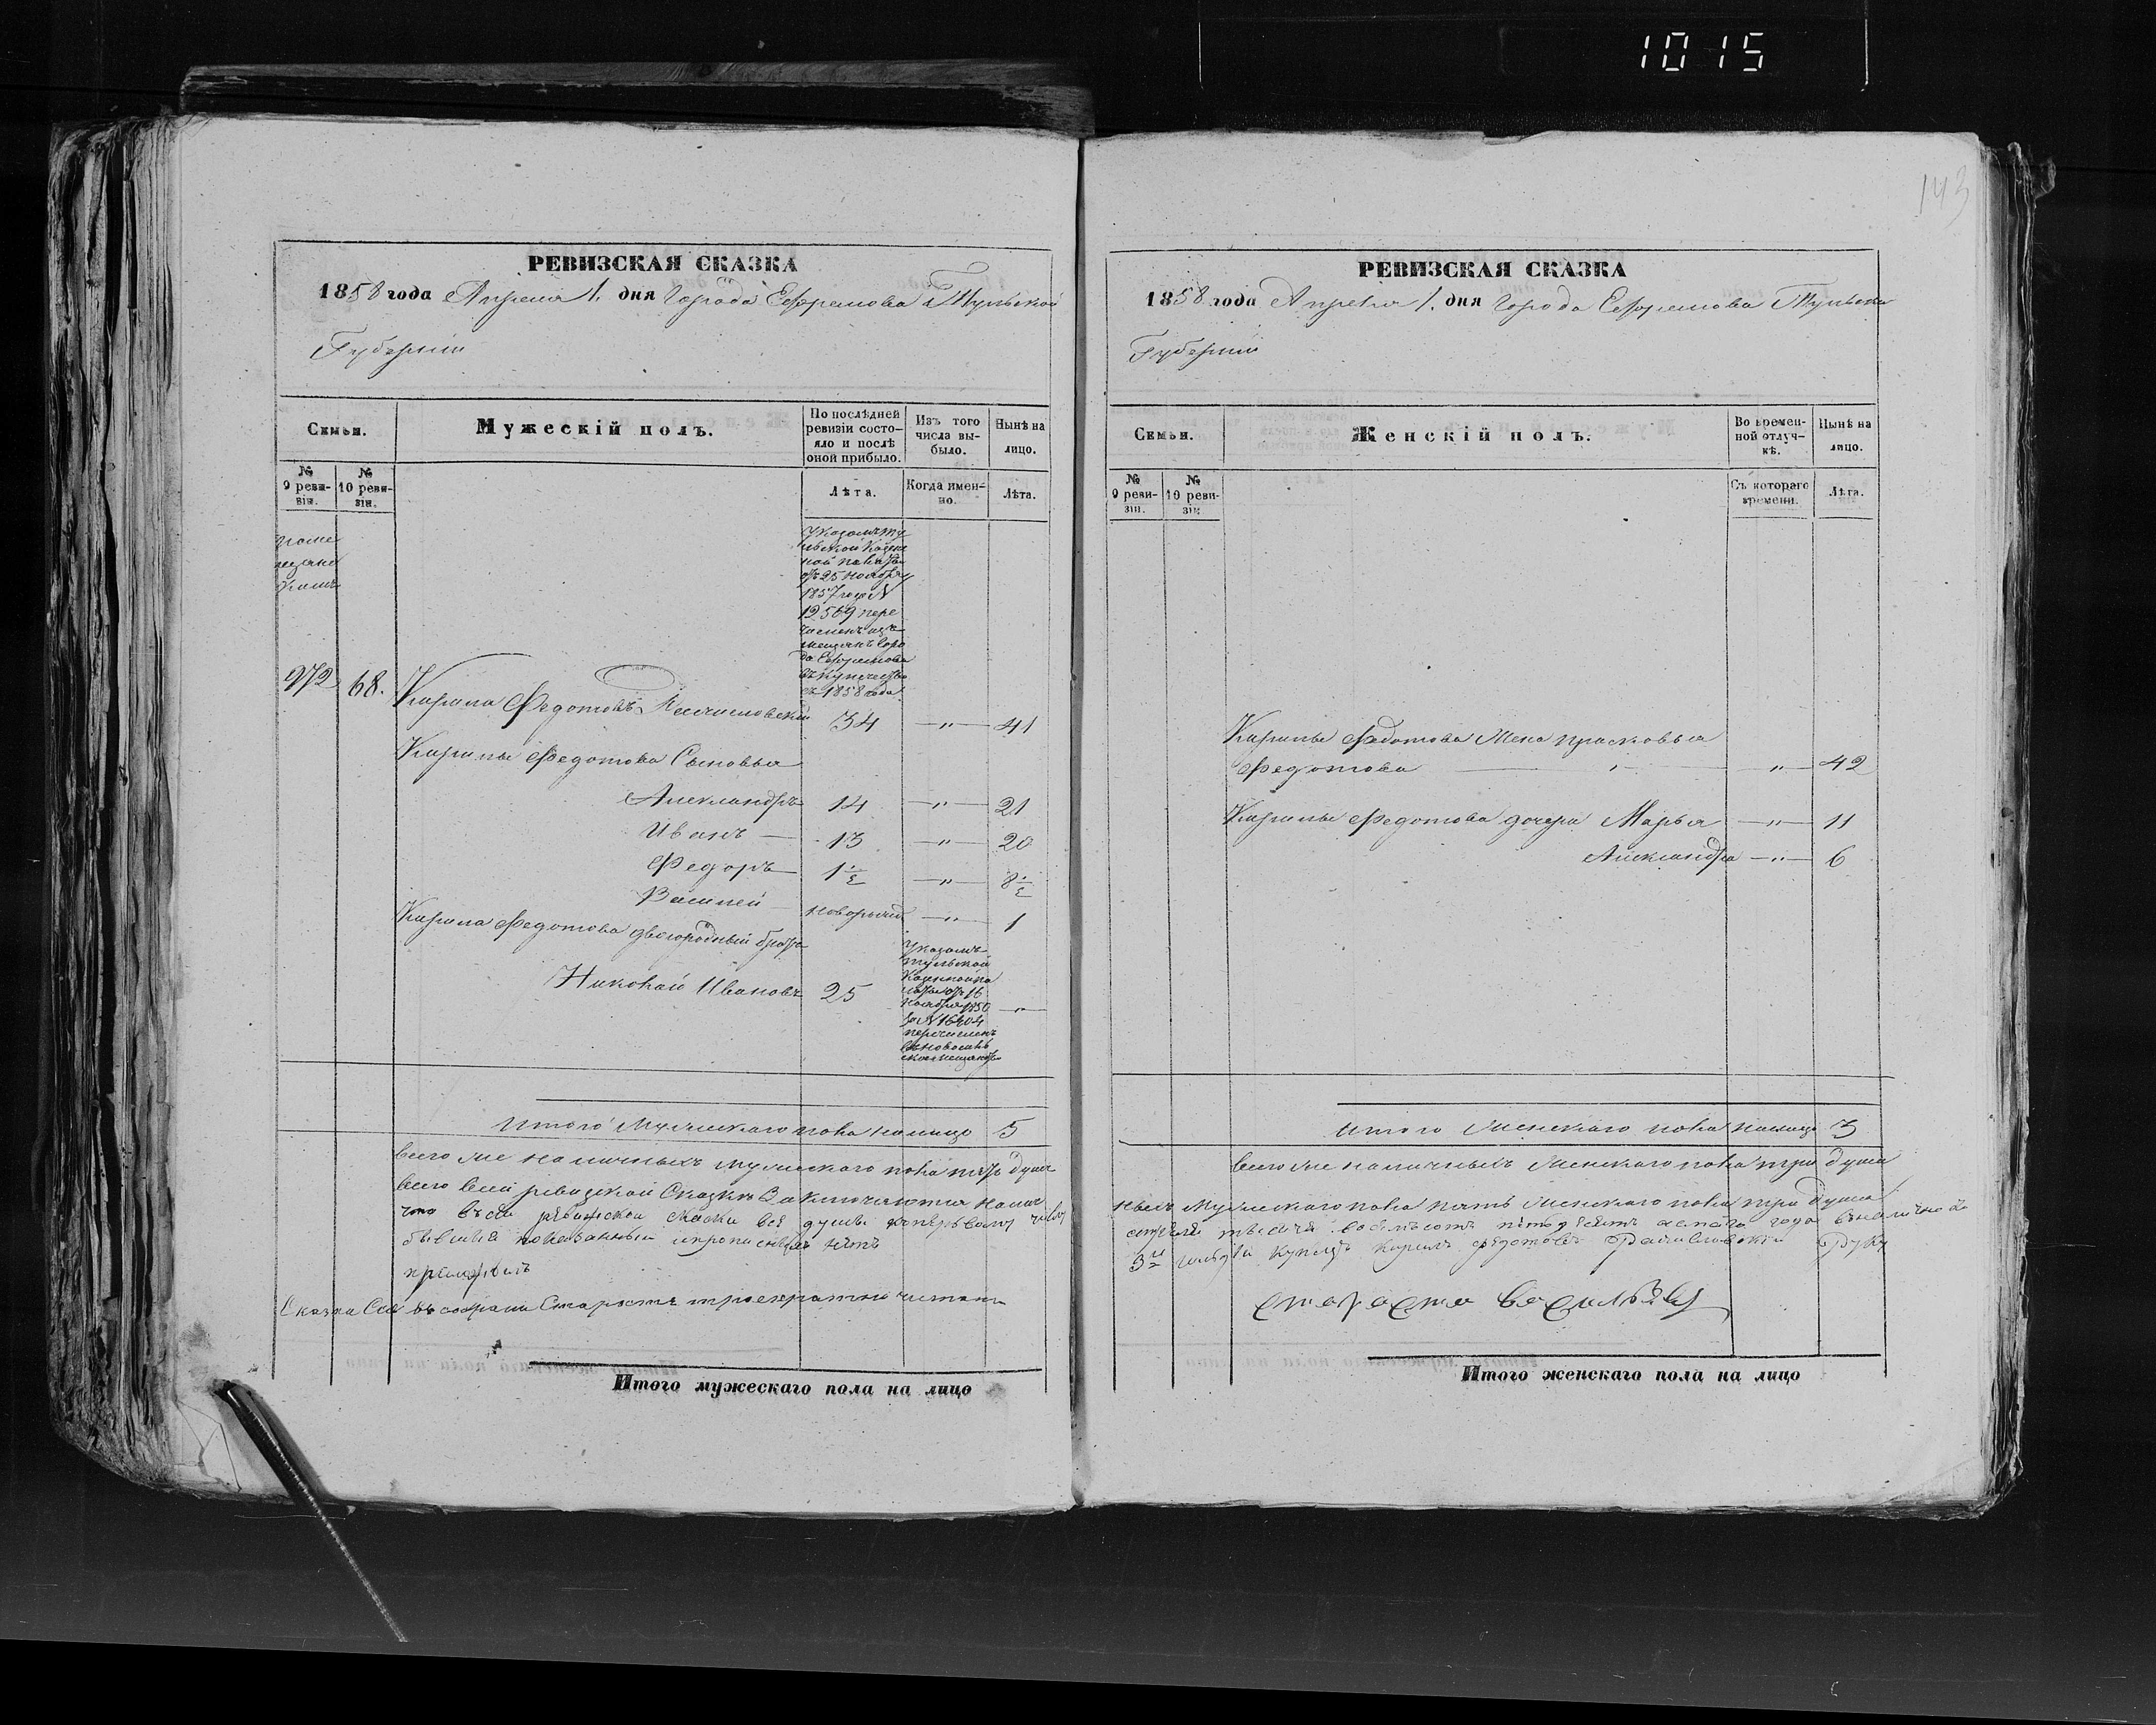 1015
143
РЕВИЗСКАЯ СКАЗКА
1858 года Апреля 1. дня Города Ефремова Тульской
Губерніи
Семьи.
Мужескій полъ.
По послѣдней
ревизіи состо-
яло и послѣ
оной прибыло.
Изъ того
числа вы-
было.
Нынѣ на
лицо.
№
9 реви-
зіи.
№
10 реви-
зіи.
Лѣта.
Когда имен-
но.
Лѣта.
Указомъ Ту
льской Казен
ной палаты
отъ 25 ноября
1857 года N
12569 пере
численъ изъ
мещанъ Горо
да Ефремова
въ купечество
съ 1858 года
972 68. Кирила Федотовъ 34 —"— 41
Кирилы Федотова Сыновья
Александръ 14 —"— 21
Иванъ — 13 —"— 20
Федоръ 1 1/2 —"— 8 1/2
Василей новорожд —"— 1
Кирила Федотова двоюродный братъ
Николай Ивановъ 25 —"—
Указомъ
Тульской
Казенной па
латы отъ 16
ноября 1850
за N 16404
перечисленъ
Итого Мужескаго пола налицо 5
всего же наличныхъ мужескаго пола пять душъ
всего всей ревизской Сказки Заключается налич
что въ сей ревизской скаски все души
бывшия показанны и прописныхъ нетъ
Сказка Сия въ собрании Старостъ троекратно читана
Итого мужескаго пола на лицо
РЕВИЗСКАЯ СКАЗКА
1858 года Апреля 1. дня Города Ефремова Тульской
Губерніи
Семьи.
Женскій полъ.
Во времен-
ной отлуч-
кѣ.
Нынѣ на
лицо.
№
9 реви-
зіи.
№
10 реви-
зіи
Съ котораго
времени.
Лѣта.
Кирилы Федотова Жена Прасковья
Федотова —"— 42
Кирилы Федотова дочери Марья —"— 11
Александра —"— 6
Итого Женскаго пола налицо 3
всего же наличныхъ Женскаго пола три души
ныхъ Мужескаго пола пять Женскаго пола три души
тысяча восемьсотъ пятдесятъ года
3й гильдіи купецъ Кирилъ Федотовъ руку
староста Васильевъ
Итого женскаго пола на лицо